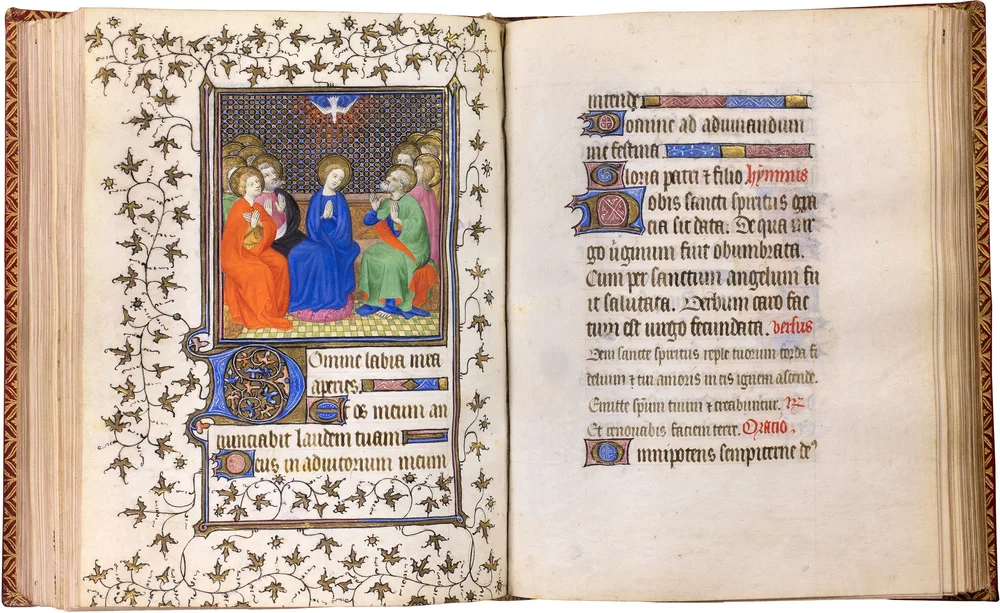 Domine labia mea
aperies
Et os meum an
nunciabit laudem tuam
Deus in adiutorium meum
intende
Domine ad adiuuandum
me festina
Gloria patri ⁊ filio hympnus
Nobis sancti spiritus gra
cia sit data. De qua uir
go uirginum fuit obumbrata.
Cum per sanctum angelum fu
it salutata. Verbum caro fac
tum est uirgo fecundata. versus
Veni sancte spiritus reple tuorum corda fi
delium ⁊ tui amoris in eis ignem ascende.
Emitte spm tuum ⁊ creabuntur. R
Et renouabis faciem terre. Oracio.
Omnipotens sempiterne de⁹